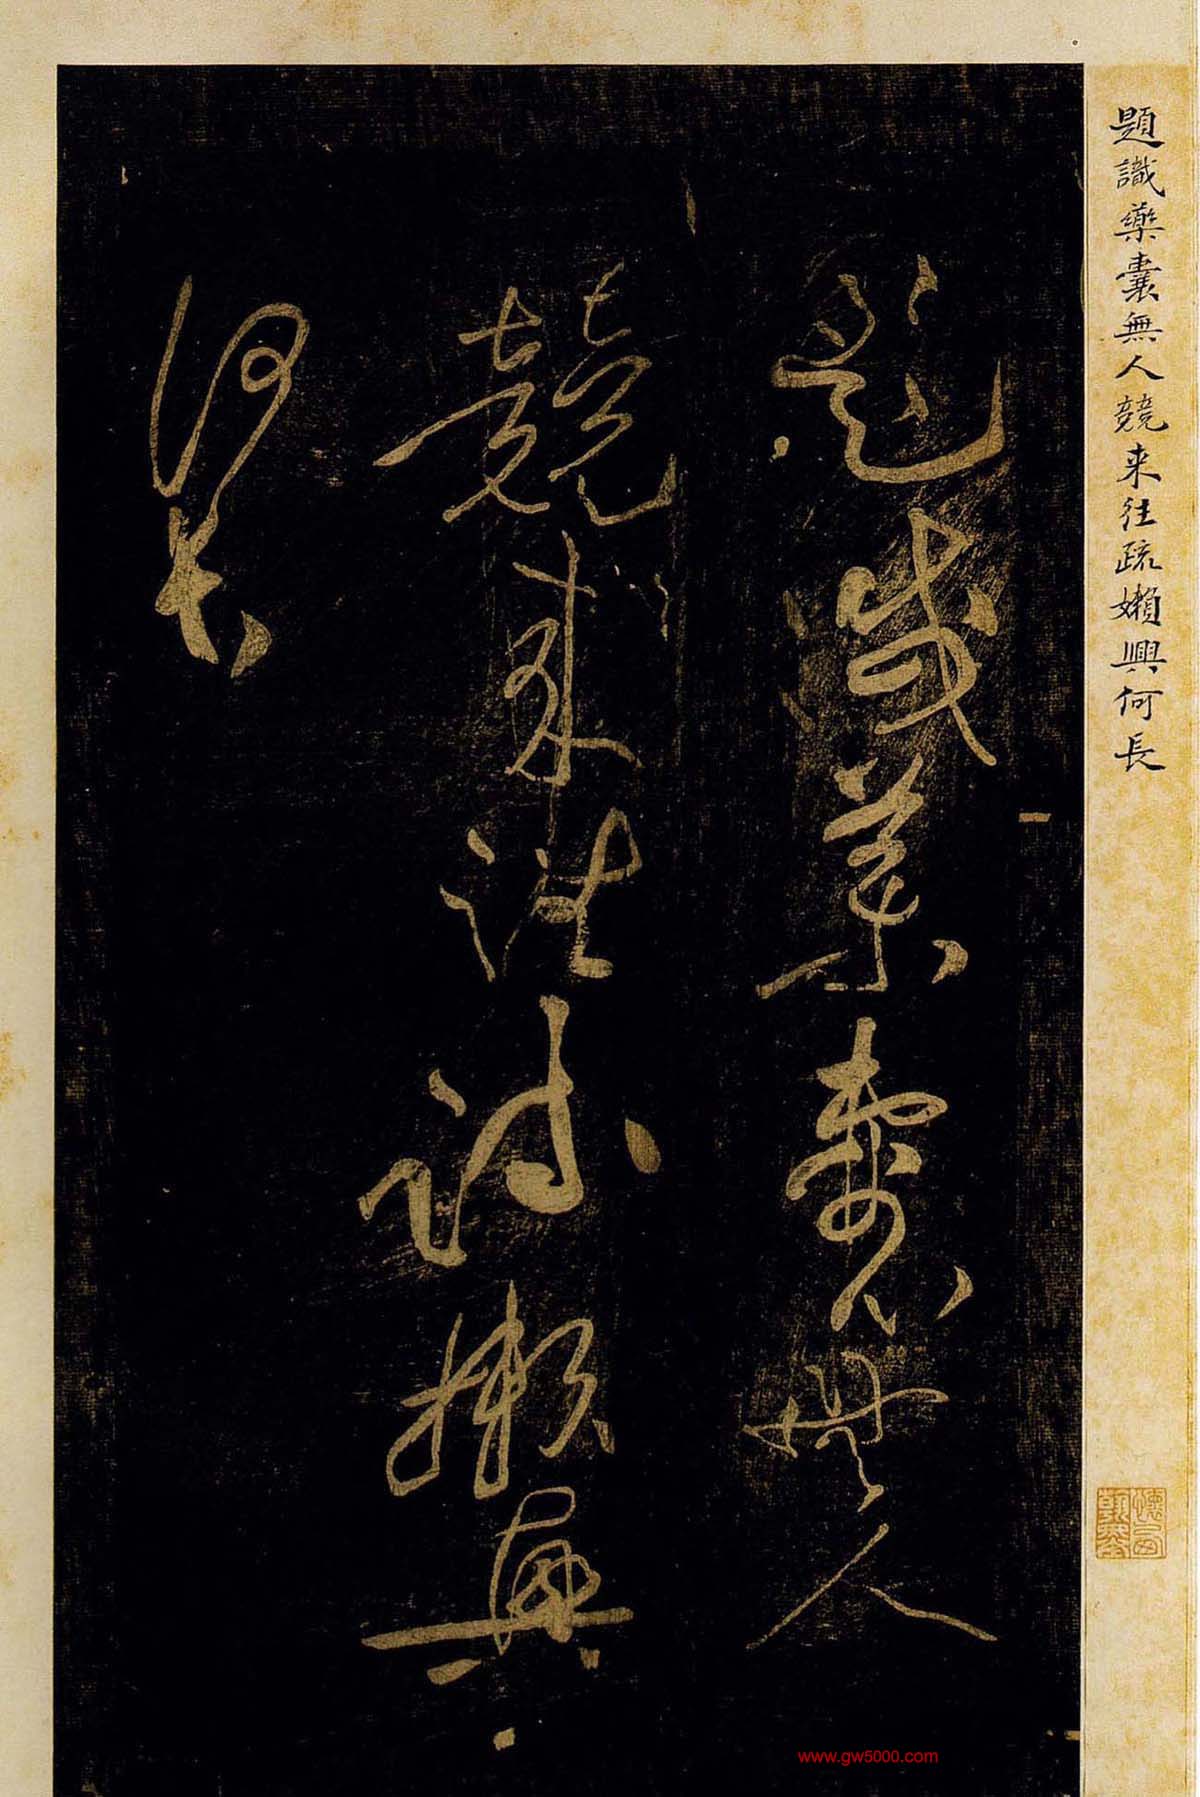 題識藥囊無人競来往疏嬾興何長
題識藥囊無人
競来往疏嬾興
何長
www.gw5000.com